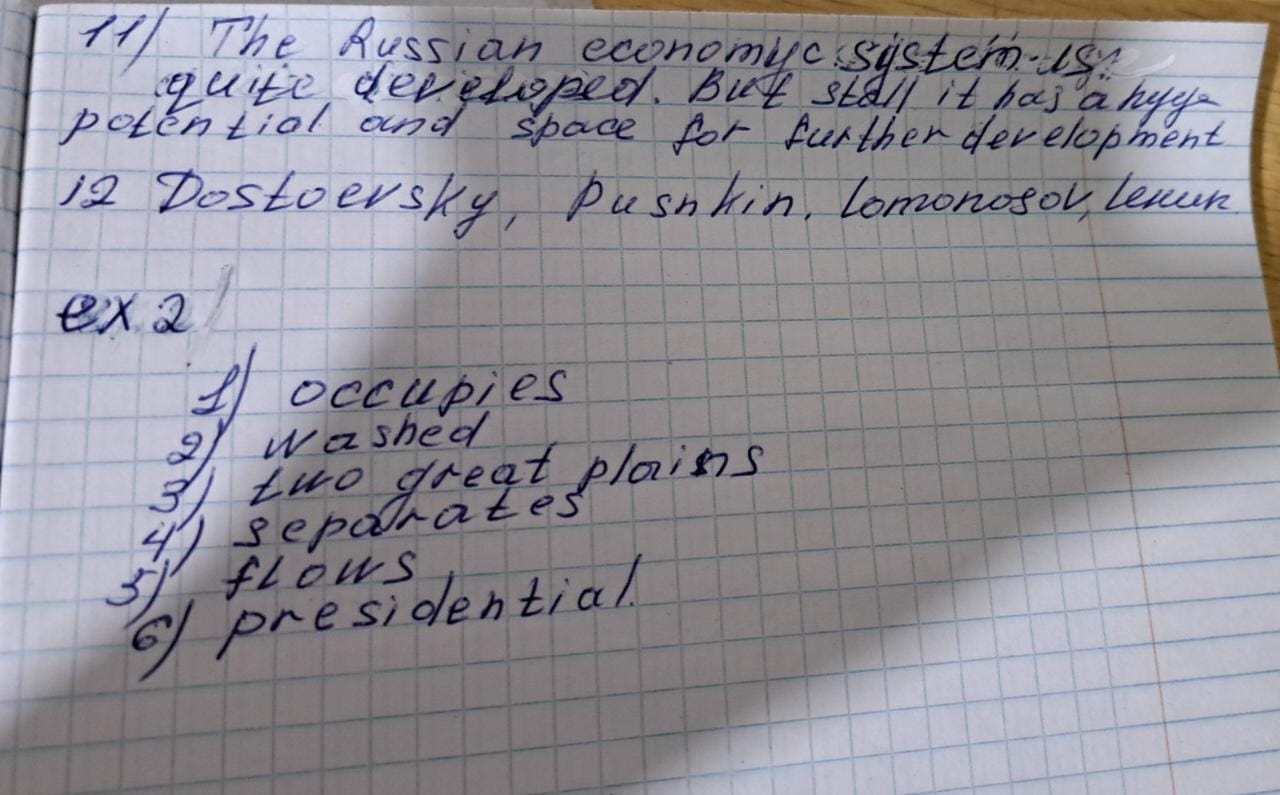 11) The Russian economyc system is
quite developed. But still it has a hyge
potential and space for further development
12 Dostoevsky, Pushkin, Lomonosov, Lenin
ex 2
1) occupies
2) washed
3) two great plains
4) separates
5) flows
6) presidential.